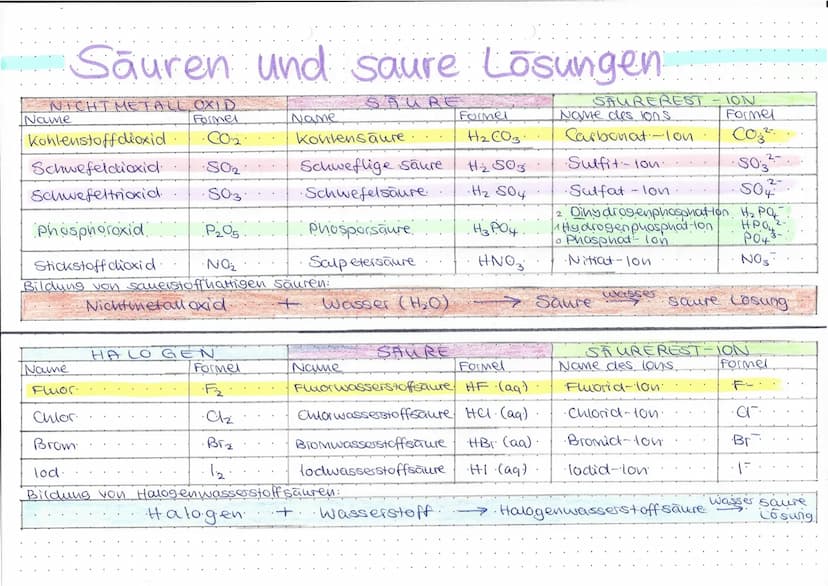 Säuren und saure Lösungen
NICHTMETALLOXID SÄURE SÄUREREST-ION
Name Formel Name Formel Name des Ions Formel
Kohlenstoffdioxid CO₂ Kohlensäure H₂CO₃ Carbonat-Ion CO₃²⁻
Schwefeldioxid SO₂ Schweflige Säure H₂SO₃ Sulfit-Ion SO₃²⁻
Schwefeltrioxid SO₃ Schwefelsäure H₂SO₄ Sulfat-Ion SO₄²⁻
2 Dihydrogenphosphation H₂PO₄⁻
Phosphoroxid P₂O₅ Phosporsäure H₃PO₄ 1 Hydrogenphosphat-Ion HPO₄²⁻
0 Phosphat-Ion PO₄³⁻
Stickstoffdioxid NO₂ Salpetersäure HNO₃ Nitrat-Ion NO₃⁻
Bildung von sauerstoffhaltigen Säuren:
Nichtmetalloxid + Wasser (H₂O) → Säure Wasser → saure Lösung
HALOGEN SÄURE SÄUREREST-ION
Name Formel Name Formel Name des Ions Formel
Fluor F₂ Fluorwasserstoffsäure HF (aq) Fluorid-Ion F⁻
Chlor Cl₂ Chlorwasserstoffsäure HCl (aq) Chlorid-Ion Cl⁻
Brom Br₂ Bromwasserstoffsäure HBr (aq) Bromid-Ion Br⁻
Iod I₂ Iodwasserstoffsäure HI (aq) Iodid-Ion I⁻
Bildung von Halogenwasserstoffsäuren:
Halogen + Wasserstoff → Halogenwasserstoffsäure Wasser → saure Lösung